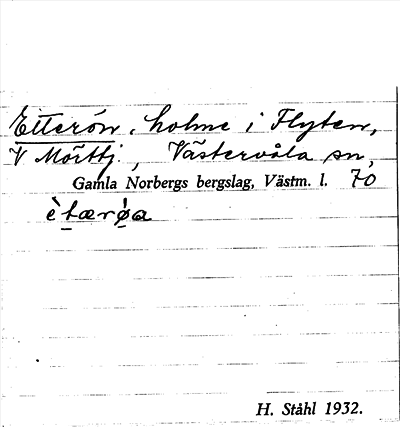 Etterön, holme i Flyten,
V Mörttj., Västervåla sn,
Gamla Norbergs bergslag, Västm. l. 70
è̱tærø̱̀a
H. Ståhl 1932.